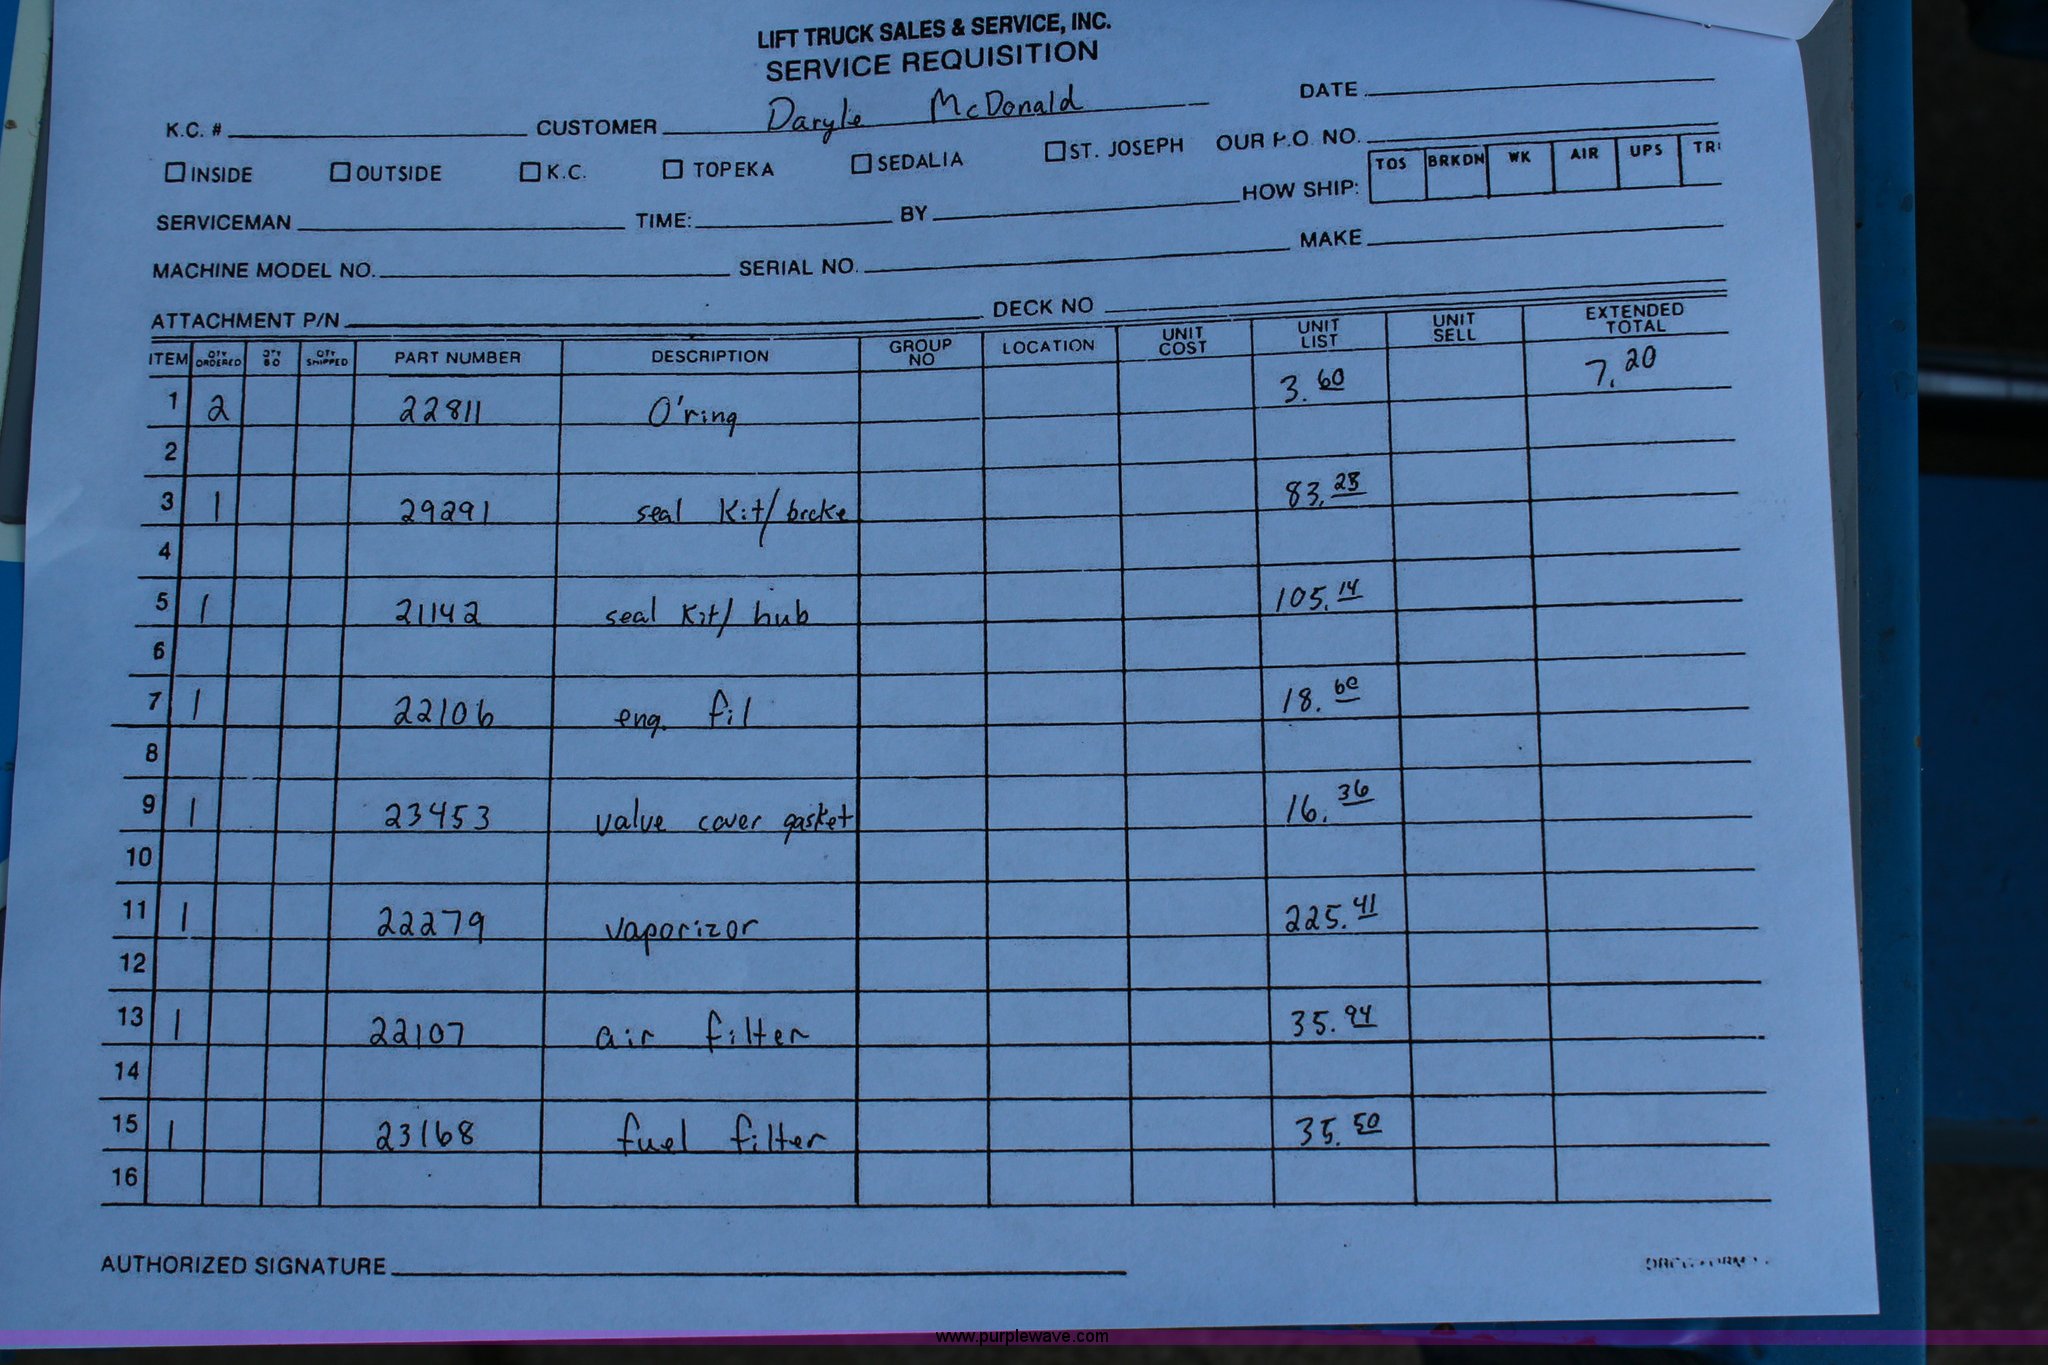 LIFT TRUCK SALES & SERVICE, INC.
SERVICE REQUISITION
K.C. # CUSTOMER Daryle McDonald DATE
INSIDE OUTSIDE K.C. TOPEKA SEDALIA ST. JOSEPH OUR P.O. NO.
SERVICEMAN TIME: BY HOW SHIP: TOS BRKDN WK AIR UPS
MACHINE MODEL NO. SERIAL NO. MAKE
ATTACHMENT P/N DECK NO
ITEM QTY ORDERED QTY BO QTY SHIPPED PART NUMBER DESCRIPTION GROUP NO LOCATION UNIT COST UNIT LIST UNIT SELL EXTENDED TOTAL
1 2 22811 O'ring 3.60 7.20
2
3 1 29291 seal kit/ brake 83.28
4
5 1 21142 seal kit/ hub 105.14
6
7 1 22106 eng. fil 18.60
8
9 1 23453 valve cover gasket 16.36
10
11 1 22279 vaporizor 225.41
12
13 1 22107 air filter 35.94
14
15 1 23168 fuel filter 35.50
16
AUTHORIZED SIGNATURE
www.purplewave.com